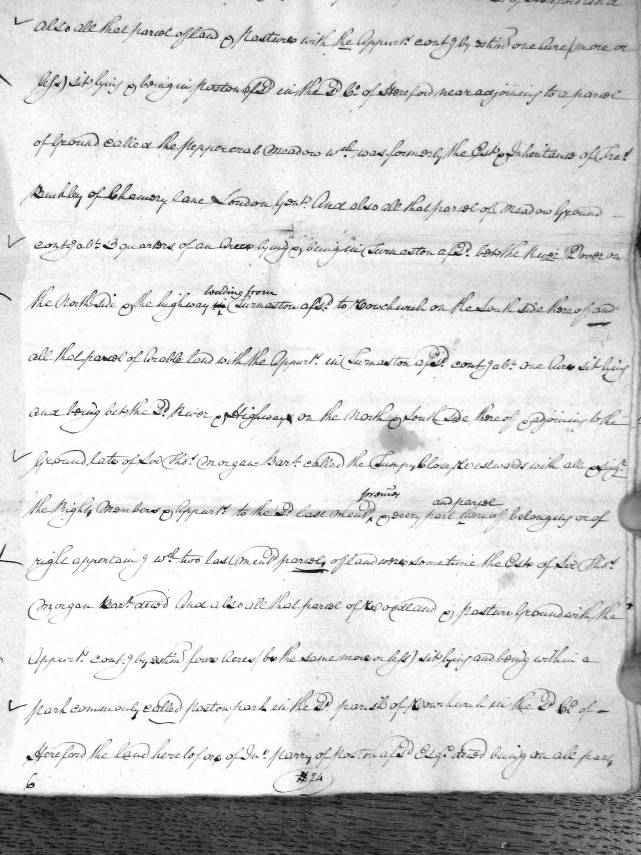 also all that parcel of land & pasture with the Appurts contg by estimn one Acre (more or
less) sit lying & being in Poston afsd in the sd Co. of Hereford near adjoining to a parcel
of Ground called the Peppercrat Meadow wch was formerly the Este & Inheritance of Fras
of Chancery lane London Gent. And also all that parcel of Meadow Ground —
contg abt 3 quarters of an Acre lying & being in Turnaston afsd betw the River Dover on
the North side & the highway leading from Turnaston afsd to Vowchurch on the South side thereof and
all that parcel of arable land with the Appurts in Turnaston afsd contg abt one Acre sit lying
and being betw the sd River & Highway on the North & South side thereof & adjoining to the
Ground late of Sir Thos Morgan Bart called the Close Westwards with all & singr
the Rights Members & Appurts to the sd last mentd premes & every part and parcel thereof belonging or of
right appertaing wch two last mentd parcels of land were sometime the Este of Sir Thos
Morgan Bart decd And also all that parcel of Woodland & pasture Ground with the
Appurts contg by estimn four Acres (be the same more or less) sit lying and being within a
park commonly called Poston park in the sd parish of Vowchurch in the sd Co. of —
Hereford the land heretofore of Jno Parry of Poston afsd Esqr decd being on all parts
6 #24